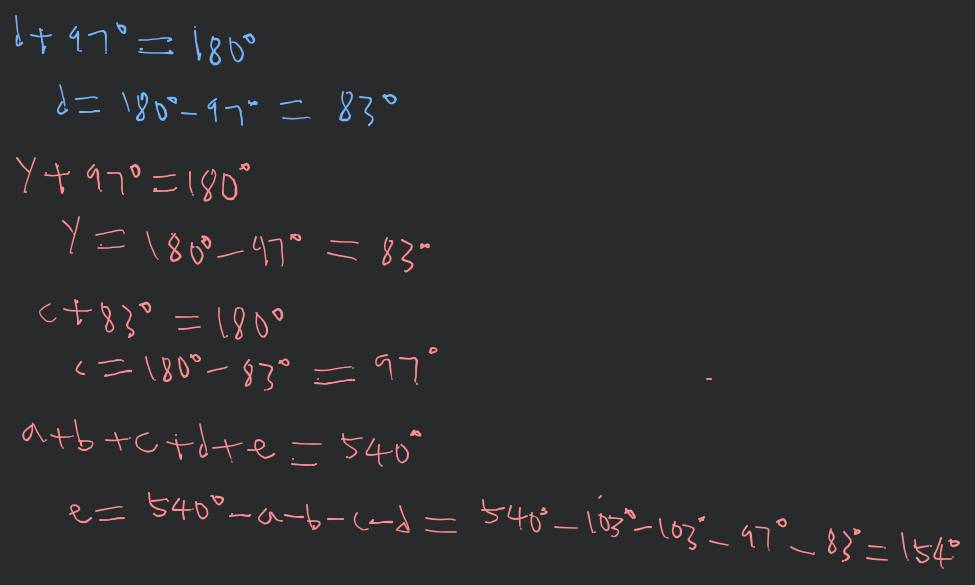 d+97°=180°
d=180°-97°=83°
y+97°=180°
y=180°-97°=83°
c+83°=180°
c=180°-83°=97°
a+b+c+d+e=540°
e=540°-a-b-c-d=540°-103°-103°-97°-83°=154°